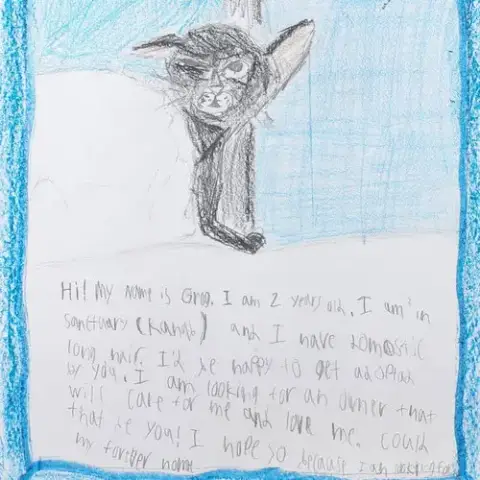 Hi! My name is Greg. I am 2 years old. I am in
sanctuary (Kanab) and I have domostic
long hair. I'd be happy to get adopted
by you. I am looking for an owner that
will care for me and love me. Could
that be you! I hope so because I am looking for
my forever home